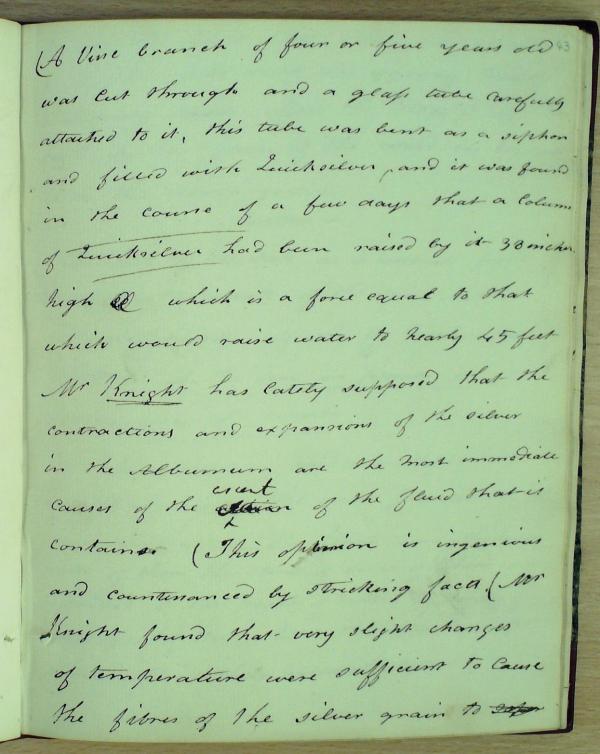 (A Vine branch of four or five years old 63
was cut through and a glass tube carefully
attached to it, this tube was bent as a siphon
and filled with Quicksilver, and it was found
in the course of a few days that a Column
of Quicksilver had been raised by it 38 inches
high which is a force equal to that
which would raise water to nearly 45 feet
Mr Knight has lately supposed that the
contractions and expansions of the silver
in the Alburnum are the most immediate
causes of the ascent of the fluid that is
contains. (This opinion is ingenious
and countenanced by stricking facts. (Mr
Knight found that very slight changes
of temperature were sufficient to cause
the fibres of the silver grain to